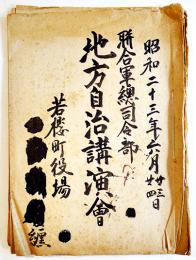 昭和二十三年六月廿三四日
聯合軍總司令部
地方自治講演會
若櫻町役場
纏